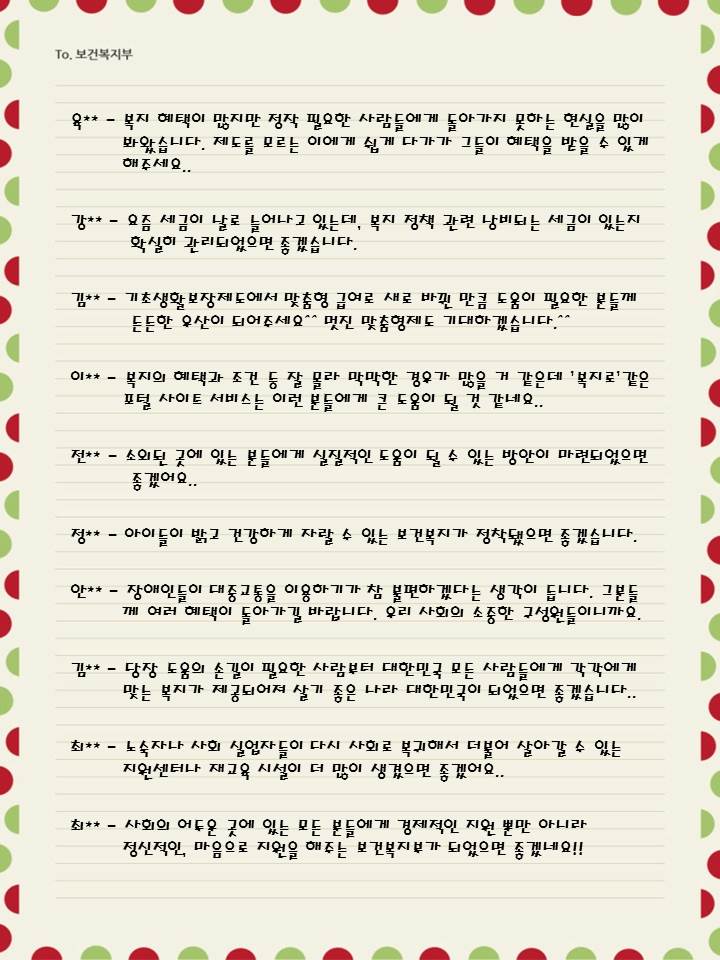 To. 보건복지부
육** - 복지 혜택이 많지만 정작 필요한 사람들에게 돌아가지 못하는 현실을 많이
봐왔습니다. 제도를 모르는 이에게 쉽게 다가가 그들이 혜택을 받을 수 있게
해주세요..
강** - 요즘 세금이 날로 늘어나고 있는데, 복지 정책 관련 낭비되는 세금이 있는지
확실히 관리되었으면 좋겠습니다.
김** - 기초생활보장제도에서 맞춤형 급여로 새로 바뀐 만큼 도움이 필요한 분들께
든든한 우산이 되어주세요^^ 멋진 맞춤형제도 기대하겠습니다.^^
이** - 복지의 혜택과 조건 등 잘 몰라 막막한 경우가 많을 거 같은데 '복지로'같은
포털 사이트 서비스는 이런 분들에게 큰 도움이 될 것 같네요..
전** - 소외된 곳에 있는 분들에게 실질적인 도움이 될 수 있는 방안이 마련되었으면
좋겠어요..
정** - 아이들이 밝고 건강하게 자랄 수 있는 보건복지가 정착됐으면 좋겠습니다.
안** - 장애인들이 대중교통을 이용하기가 참 불편하겠다는 생각이 듭니다. 그분들
께 여러 혜택이 돌아가길 바랍니다. 우리 사회의 소중한 구성원들이니까요.
김** - 당장 도움의 손길이 필요한 사람부터 대한민국 모든 사람들에게 각각에게
맞는 복지가 제공되어져 살기 좋은 나라 대한민국이 되었으면 좋겠습니다..
최** - 노숙자나 사회 실업자들이 다시 사회로 복귀해서 더불어 살아갈 수 있는
지원센터나 재교육 시설이 더 많이 생겼으면 좋겠어요..
최** - 사회의 어두운 곳에 있는 모든 분들에게 경제적인 지원 뿐만 아니라
정신적인, 마음으로 지원을 해주는 보건복지부가 되었으면 좋겠네요!!